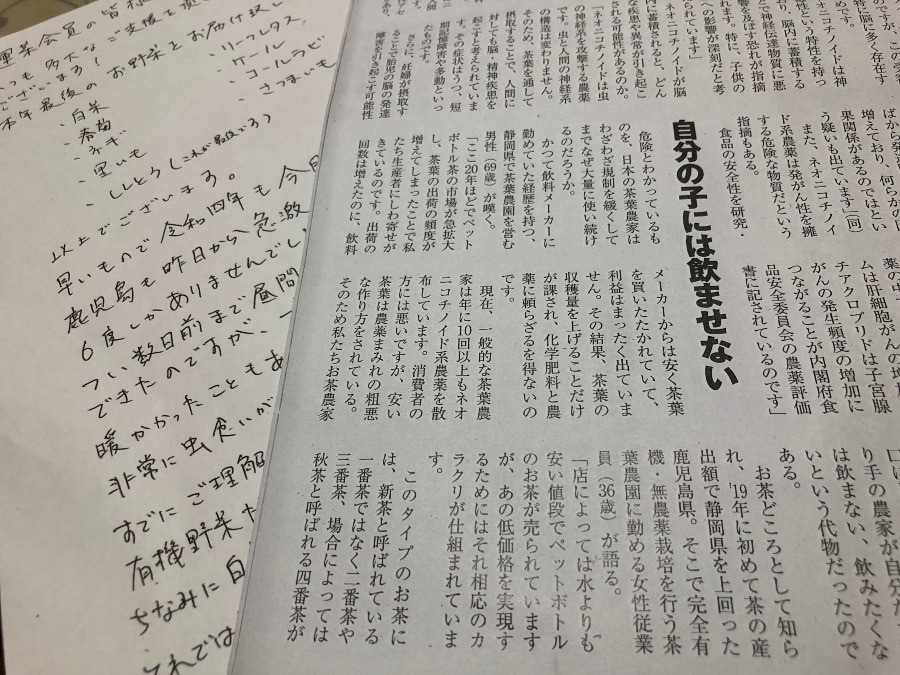 運茶会員の皆様
いつも多大なご支援を頂
ございます。
本年最後のお野菜をお届け致し
・白菜
・春菊
・ネギ
・里いも
・リーフレタス
・ケール
・コールラビ
・さつまいも
・ししとう(これが最後だろ)
以上でございます。
早いもので令和四年も今月
鹿児島も昨日から急激
6度しかありませんでし
つい数日前まで昼間
できたのですが、
暖かかったこともあ
非常に虫食いが
すでにご理解
有機野菜だ
ちなみに白
それでは
特に脳に多く存在す
ネオニコチノイドは神
性という特性を持つ
り、脳内に蓄積する
とで神経伝達物質に悪
響を及ぼす恐れが指摘
れます。特に、子供の
への影響が深刻だと考
られています」
ネオニコチノイドが脳
内に蓄積されると、どん
な疾患や異常が引き起こ
される可能性があるのか。
「ネオニコチノイドは虫
の神経系を攻撃する農薬
です。虫と人間の神経系
の構造は変わりません。
そのため、茶葉を通して
摂取することで、人間に
対しても脳・精神疾患を
起こすと考えられていま
す。その症状はうつ、短
期記憶障害や多動といっ
たものです。
さらに、妊婦が摂取す
ることで胎児の脳の発達
障害を引き起こす可能性
ばから発
増えており、何らかの因
果関係があるのではとい
う疑いも出ています」(同)
また、ネオニコチノイ
ド系農薬は発がん性を擁
する危険な物質だという
指摘もある。
「食品の安全性を研究・
自分の子には飲ませない
危険とわかっているも
のを、日本の茶葉農家は
わざわざ規制を緩くして
までなぜ大量に使い続け
るのだろうか。
かつて飲料メーカーに
勤めていた経歴を持つ、
静岡県で茶葉農園を営む
男性(69歳)が嘆く。
「ここ20年ほどでペット
ボトル茶の市場が急拡大
し、茶葉の出荷の頻度が
増えてしまったことで私
たち生産者にしわ寄せが
きているのです。出荷の
回数は増えたのに、飲料
薬の中
ムは肝細胞がんの増加
チアクロプリドは子宮腺
がんの発生頻度の増加に
つながることが内閣府食
品安全委員会の農薬評価
書に記されているのです」
メーカーからは安く茶葉
を買いたたかれていて、
利益はまったく出ていま
せん。その結果、茶葉の
収穫量を上げることだけ
が課され、化学肥料と農
薬に頼らざるを得ないの
です。
現在、一般的な茶葉農
家は年に10回以上もネオ
ニコチノイド系農薬を散
布しています。消費者の
方には悪いですが、安い
茶葉は農薬まみれの粗悪
な作り方をされている。
そのため私たちお茶農家
り手の農家が自分た
は飲まない、飲みたくな
いという代物だったので
ある。
お茶どころとして知ら
れ、'19年に初めて茶の産
出額で静岡県を上回った
鹿児島県。そこで完全有
機・無農薬栽培を行う茶
葉農園に勤める女性従業
員(36歳)が語る。
「店によっては水よりも
安い値段でペットボトル
のお茶が売られています
が、あの低価格を実現す
るためにはそれ相応のカ
ラクリが仕組まれていま
す。
このタイプのお茶に
は、新茶と呼ばれている
一番茶ではなく二番茶や
三番茶、場合によっては
秋茶と呼ばれる四番茶が